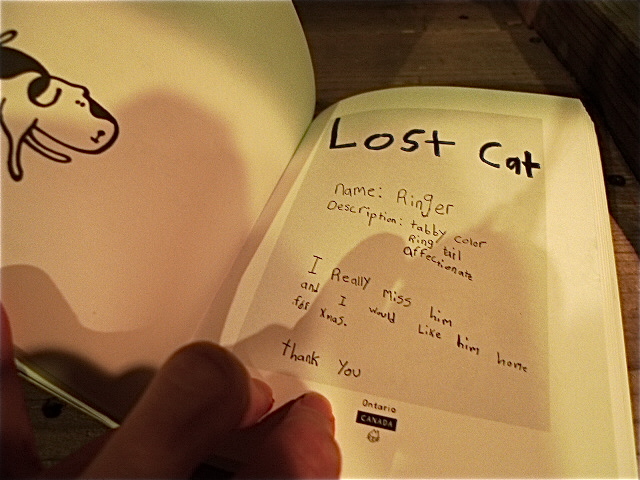 Lost Cat
name: Ringer
Description: tabby color
Ring tail
affectionate
I Really miss him
and I would Like him home
for Xmas.
thank You
Ontario
CANADA